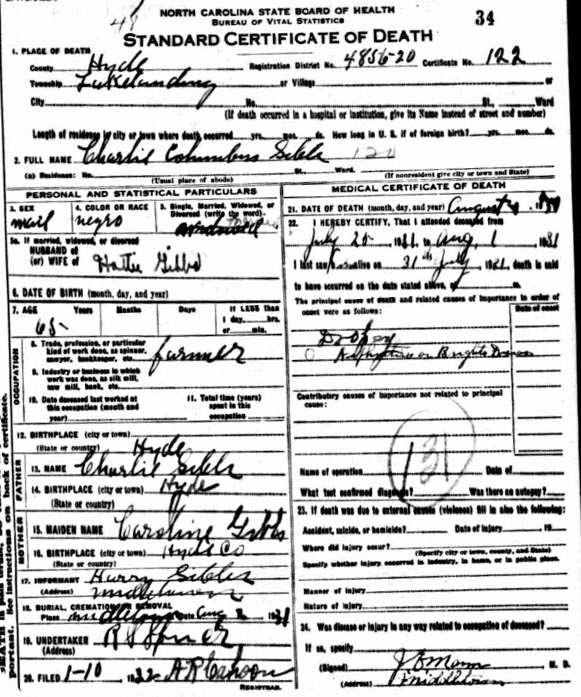 NORTH CAROLINA STATE BOARD OF HEALTH
BUREAU OF VITAL STATISTICS
34
STANDARD CERTIFICATE OF DEATH
1. PLACE OF DEATH
County Hyde Registration District No. 4856-20 Certificate No. 122
Township Lakelanding or Village or
City No. St. Ward
(If death occurred in a hospital or institution, give its Name instead of street and number)
Length of residence in city or town where death occurred yrs. mos. ds. How long in U. S. if of foreign birth? yrs. mos. ds.
2. FULL NAME Charlie Columbus Gibbs 120
(a) Residence: No. St. Ward.
(Usual place of abode) (If nonresident give city or town and State)
PERSONAL AND STATISTICAL PARTICULARS
3. SEX 4. COLOR OR RACE 5. Single, Married, Widowed, or Divorced (write the word).
mail negro
5a. If married, widowed, or divorced
HUSBAND of
(or) WIFE of Hattie Gibbs
6. DATE OF BIRTH (month, day, and year)
7. AGE Years Months Days If LESS than
1 day, hrs.
or min.
65
OCCUPATION
8. Trade, profession, or particular
kind of work done, as spinner,
sawyer, bookkeeper, etc. farmer
9. Industry or business in which
work was done, as silk mill,
saw mill, bank, etc.
10. Date deceased last worked at
this occupation (month and
year)
11. Total time (years)
spent in this
occupation
12. BIRTHPLACE (city or town)
(State or country) Hyde
FATHER
13. NAME Charlie Gibbs
14. BIRTHPLACE (city or town) Hyde
(State or country)
MOTHER
15. MAIDEN NAME Caroline Gibbs
16. BIRTHPLACE (city or town) Hyde Co
(State or country)
17. INFORMANT Harry Gibbs
(Address) Middletown
18. BURIAL, CREMATION, OR REMOVAL
Place Middletown Date Aug 2 1931
19. UNDERTAKER
(Address)
20. FILED 1-10 1932 A R Cahoon
REGISTRAR.
MEDICAL CERTIFICATE OF DEATH
21. DATE OF DEATH (month, day, and year) August
22. I HEREBY CERTIFY, That I attended deceased from
July 20 1931 to Aug 1 1931
I last saw alive on 31th July 1931, death is said
to have occurred on the date stated above, at m.
The principal cause of death and related causes of importance in order of
onset were as follows:
Date of onset
Dropsy
or Brights Disease
Contributory causes of importance not related to principal
cause:
131
Name of operation Date of
What test confirmed diagnosis? Was there an autopsy?
23. If death was due to external causes (violence) fill in also the following:
Accident, suicide, or homicide? Date of injury 19
Where did injury occur?
(Specify city or town, county, and State)
Specify whether injury occurred in industry, in home, or in public place.
Manner of injury
Nature of injury
24. Was disease or injury in any way related to occupation of deceased?
If so, specify
(Signed) M. D.
(Address) Middletown
See instructions on back of certificate.
portant.